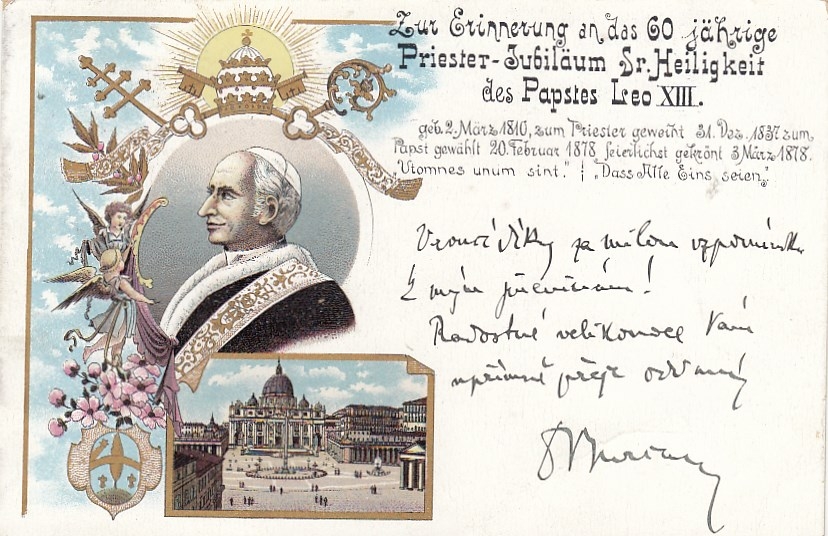 Zur Erinnerung an das 60 jährige
Priester-Jubiläum Sr. Heiligkeit
des Papstes Leo XIII.
geb. 2. März 1810, zum Priester geweiht 31. Dez. 1837 zum
Papst gewählt 20. Februar 1878 feierlichst gekrönt 3 März 1878.
"Ut omnes unum sint." | "Dass Alle Eins seien"
Vroucí díky za milou vzpomínku
k mým
Radostné velikonoce Vám
upřímně přeje oddaný